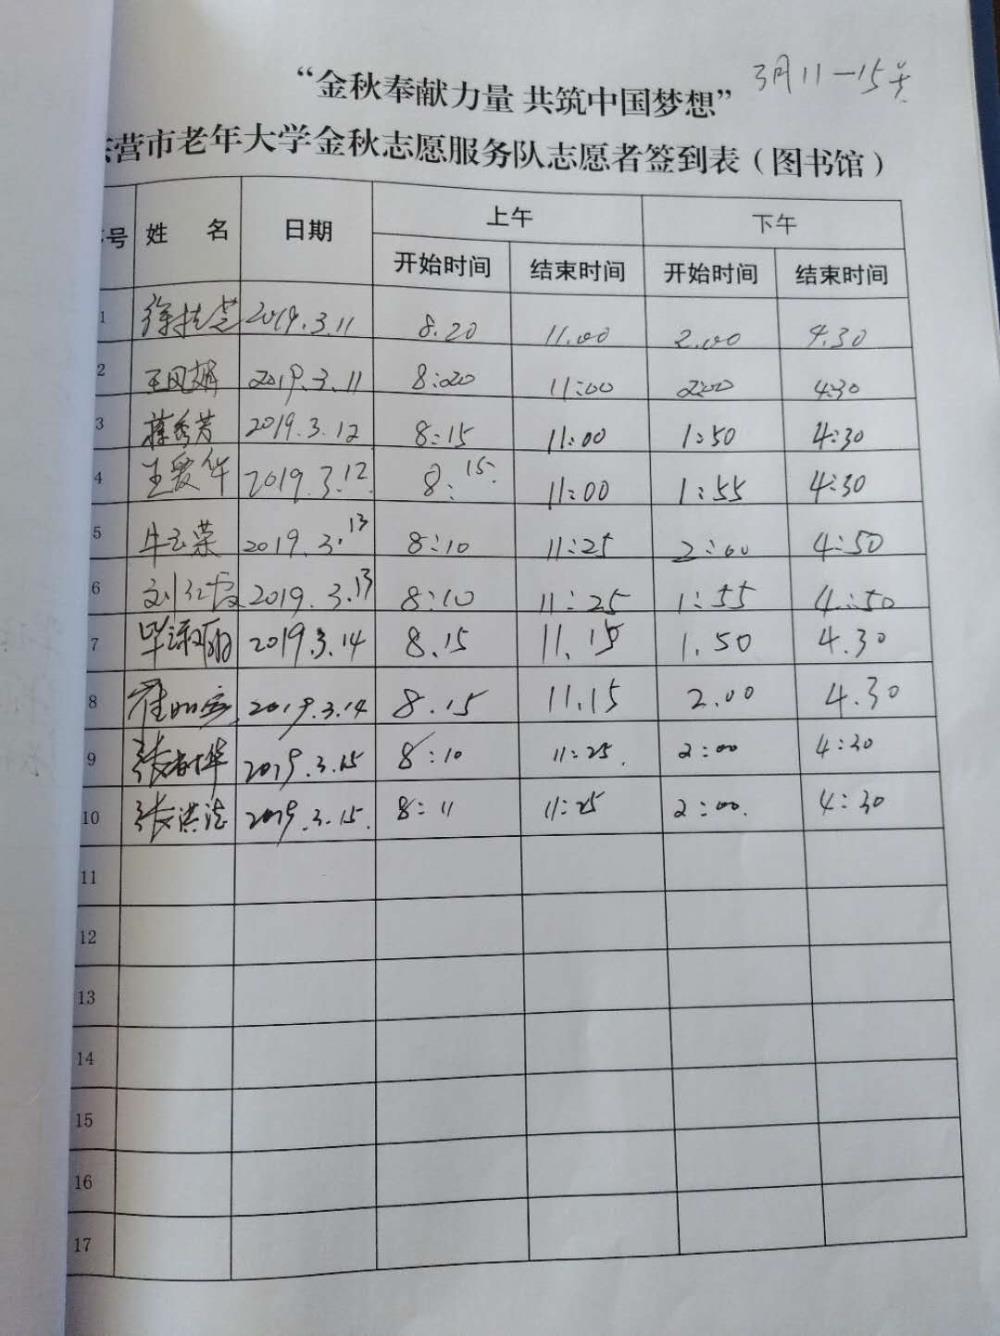 3月11-15号
“金秋奉献力量 共筑中国梦想”
东营市老年大学金秋志愿服务队志愿者签到表（图书馆）
上午 下午
号 姓 名 日期 开始时间 结束时间 开始时间 结束时间
1 徐桂芝 2019.3.11 8.20 11.00 2.00 4.30
2 王凤娟 2019.3.11 8:20 11:00 2:00 4:30
3 蒋秀芳 2019.3.12 8:15 11:00 1:50 4:30
4 王爱华 2019.3.12 8:15 11:00 1:55 4:30
5 牛玉荣 2019.3.13 8:10 11:25 2:00 4:50
6 刘红霞 2019.3.13 8:10 11:25 1:55 4:50
7 毕淑丽 2019.3.14 8.15 11.15 1.50 4.30
8 崔 2019.3.14 8.15 11.15 2.00 4.30
9 张树华 2019.3.15 8:10 11:25 2:00 4:30
10 张洪 2019.3.15 8:11 11:25 2:00 4:30
11
12
13
14
15
16
17